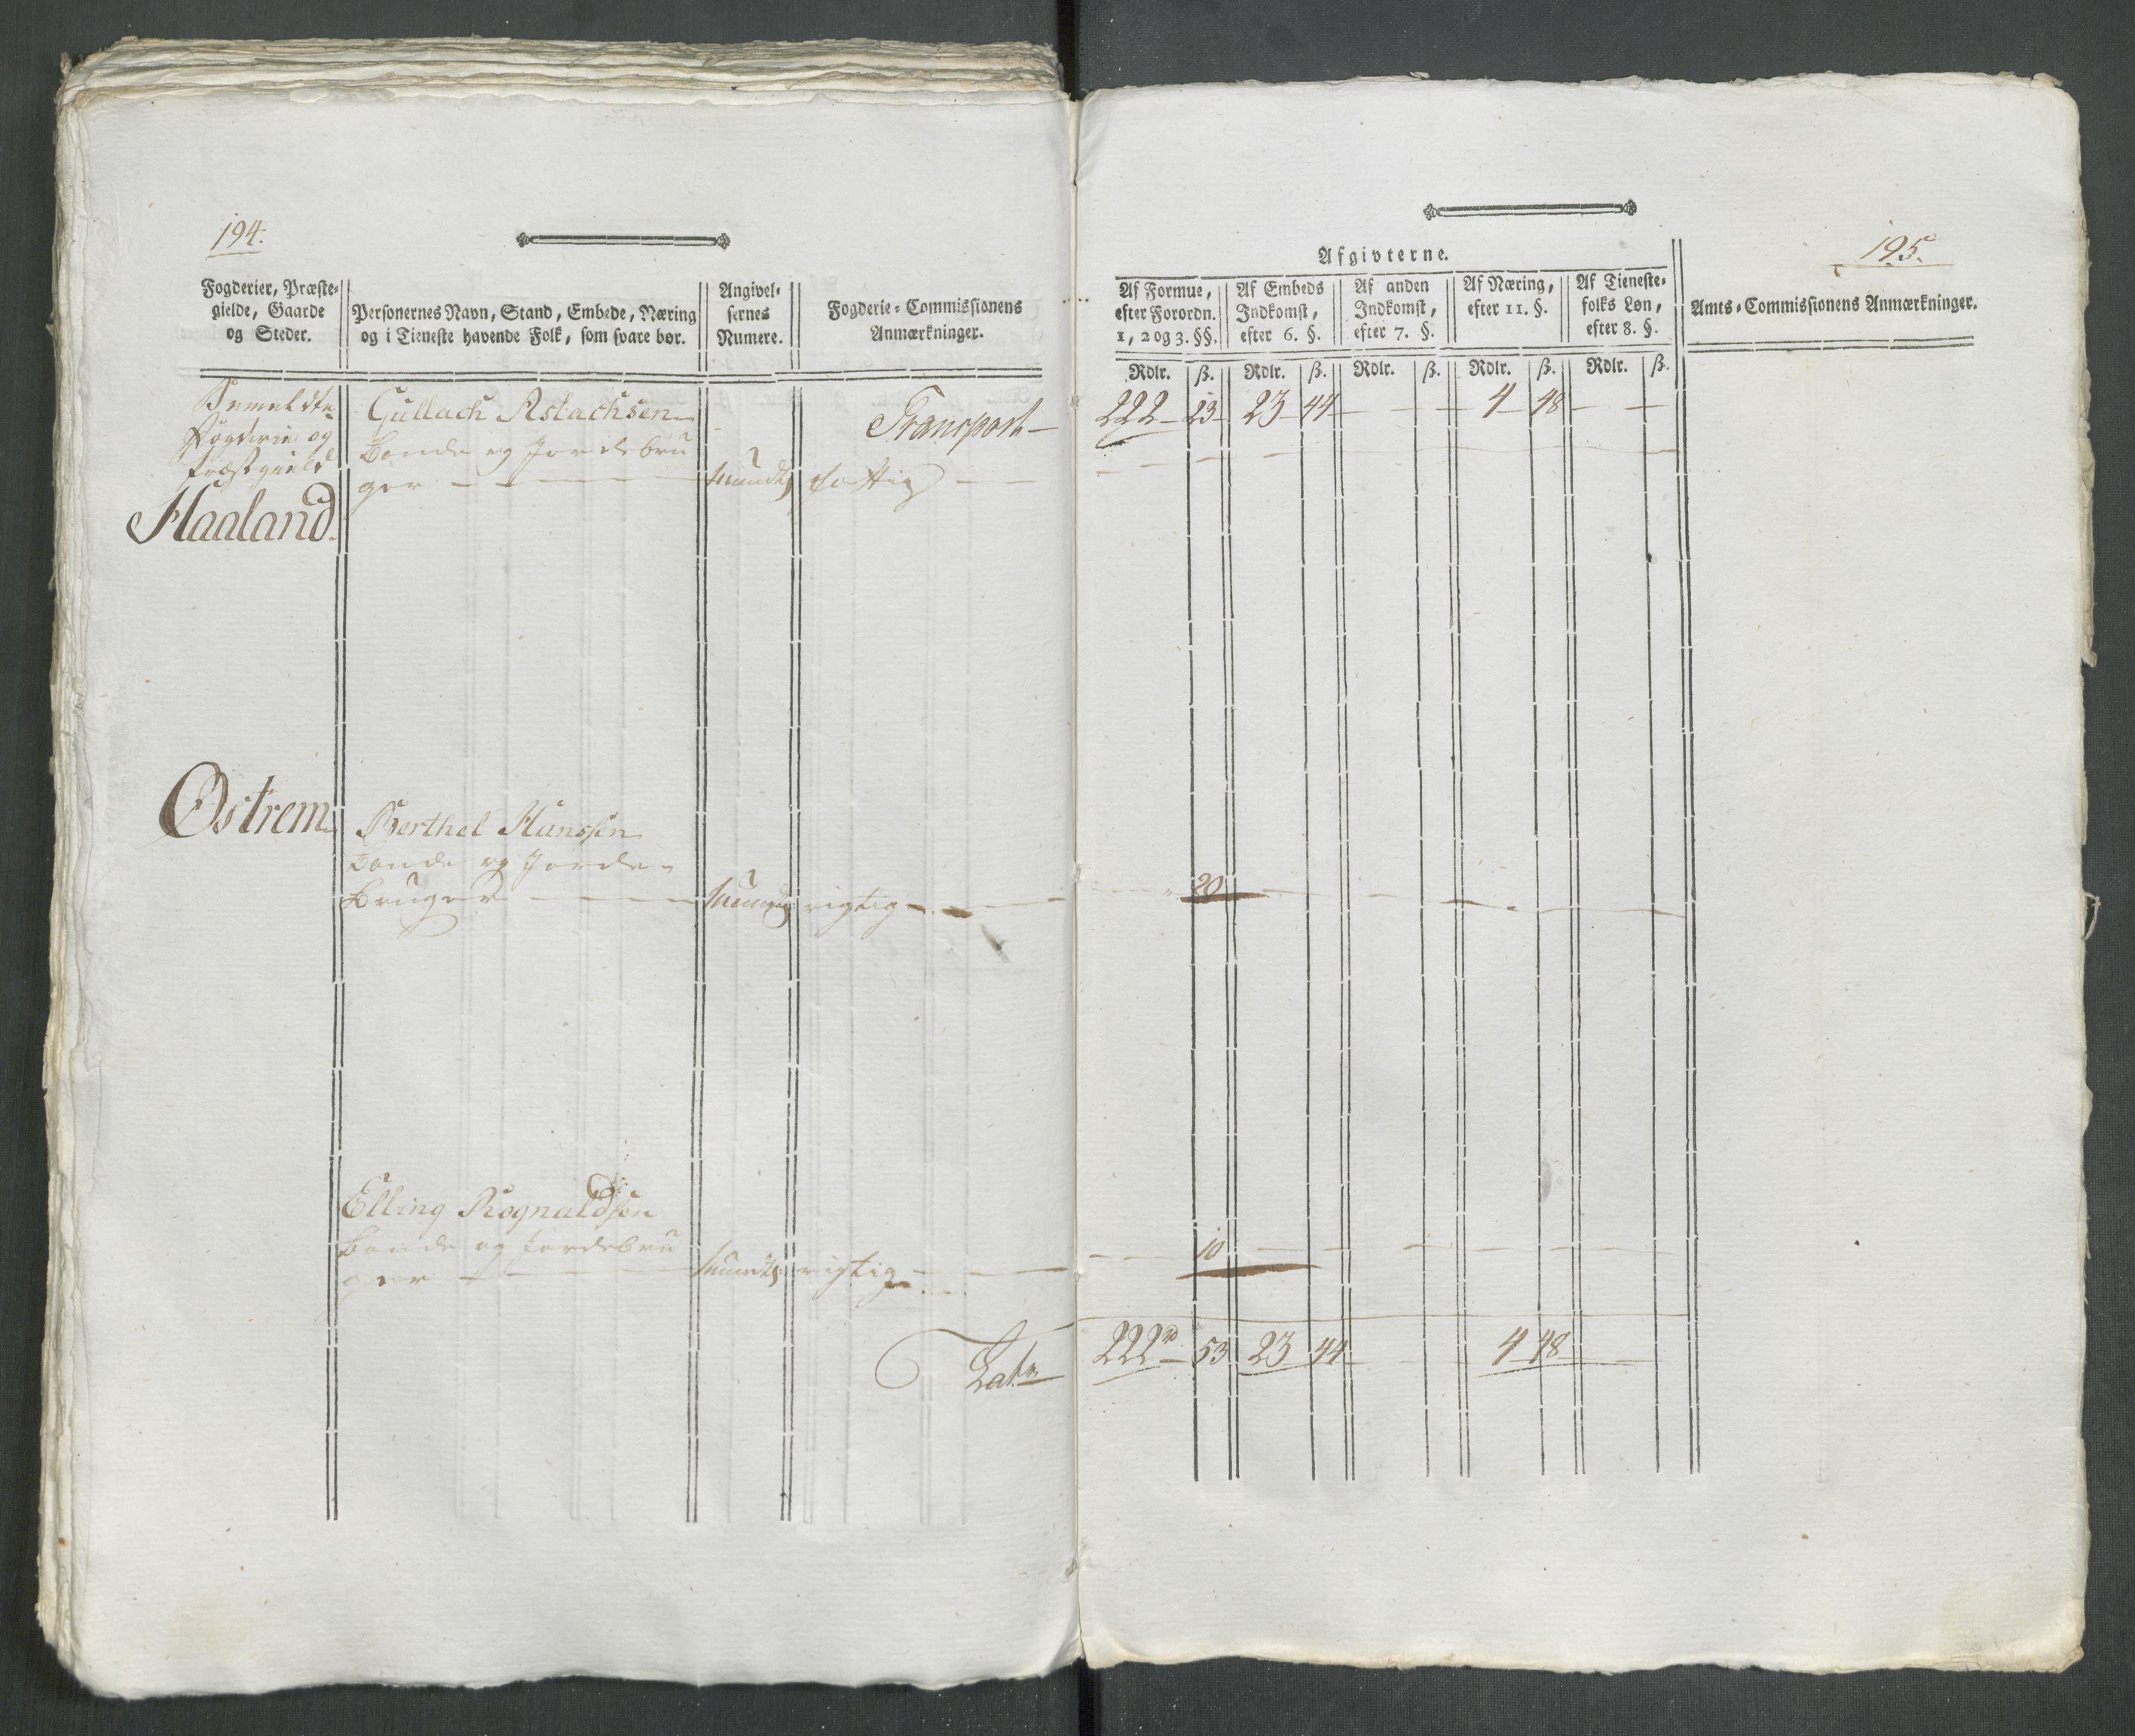 194.
Fogderier, Præste-
gielde, Gaarde
og Steder.
Personernes Navn, Stand, Embede, Næring
og i Tieneste havende Folk, som svare bør.
Angivel-
sernes
Numere.
Fogderie-Commissionens
Anmærkninger.
Bemeldte
Fogderie og
Præstegield
Haaland.
Gullach Aslachsen
Bonde og Jordebru
ger - - - - mundtl fattig - -
Transport -
Østrem.
Berthel Hanssen
Bonde og Jorde-
Bruger - - - - mundtl rigtig - - -
Elling Rognaldsen
Bonde og Jordebru
ger - - - mundtl rigtig - - -
Lat.
195.
Afgivterne.
Af Formue,
efter Forordn.
1, 2 og 3. §§.
Af Embeds
Indkomst,
efter 6. §.
Af anden
Indkomst,
efter 7. §.
Af Næring,
efter 11. §.
Af Tieneste-
folks Løn,
efter 8. §.
Amts-Commissionens Anmærkninger.
Rdlr. ß. Rdlr. ß. Rdlr. ß. Rdlr. ß. Rdlr. ß.
222 - 23 - 23 - 44 - - - 4 - 48 - -
- - 20 - - - -
- - 10 - - - -
222 - 53 23 44 - - - 4 48 - -